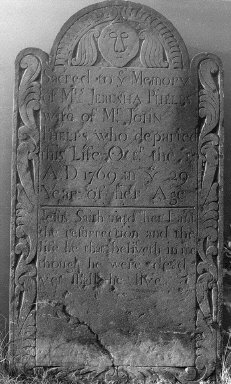 Sacred to yͤ Memory
of Mͬˢ Jerusha Phelps
wife of Mͬ John
Phelps who departed
this Life Octͬ the
A D 1769 in yͤ 29
Year of her Age
Jesus Saith unto her I am
the resurrection and the
life he that believeth in me
though he were dead
yet shall he live